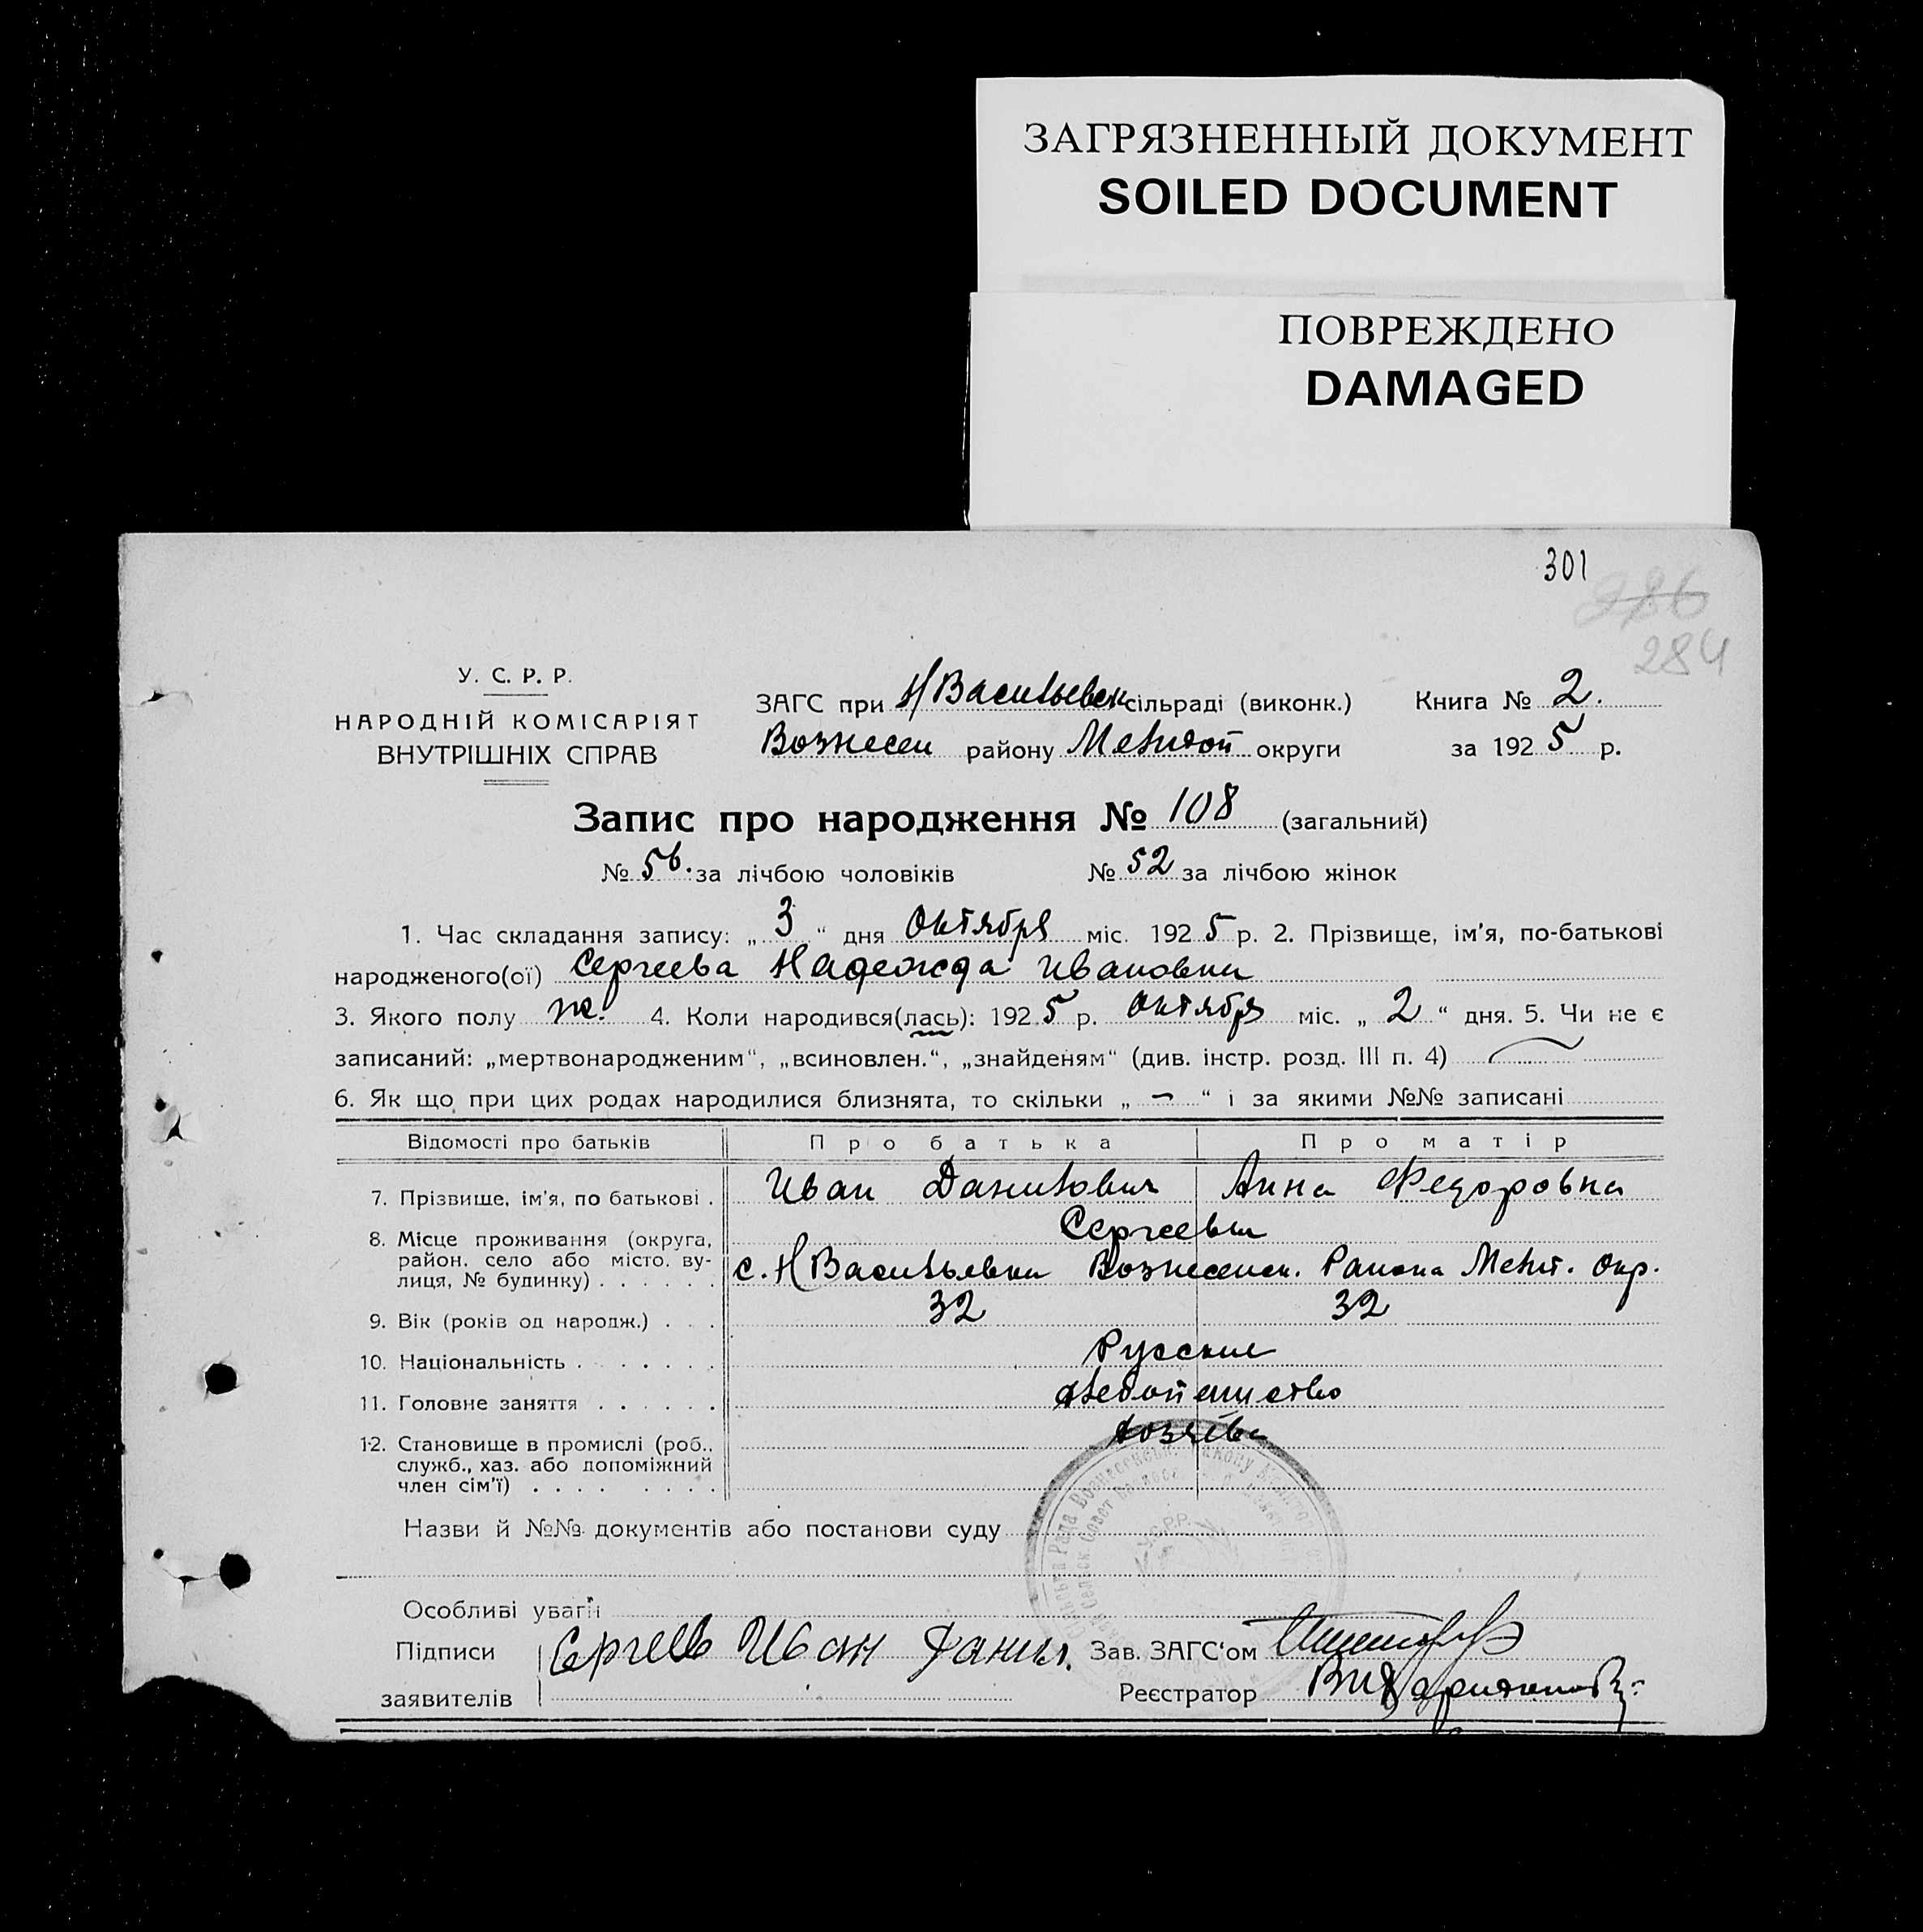 ЗАГРЯЗНЕННЫЙ ДОКУМЕНТ
SOILED DOCUMENT
ПОВРЕЖДЕНО
DAMAGED
301
286
284
У. С. Р. Р.
НАРОДНІЙ КОМІСАРІЯТ
ВНУТРІШНІХ СПРАВ
ЗАГС при Н Васильевск сільраді (виконк.) Книга № 2.
Вознесен району Мелитоп округи за 1925 р.
Запис про народження № 108 (загальний)
№ 56. за лічбою чоловіків № 52 за лічбою жінок
1. Час складання запису: „ 3 “ дня Октября міс. 1925 р. 2. Прізвище, ім'я, по-батькові
народженого(ої) Сергеева Надежда Ивановна
3. Якого полу ж. 4. Коли народився(лась): 1925 р. Октября міс. „ 2 “ дня. 5. Чи не є
записаний: „мертвонародженим“, „всиновлен.“, „знайденям“ (див. інстр. розд. III п. 4)
6. Як що при цих родах народилися близнята, то скільки „ — “ і за якими №№ записані
Відомості про батьків Про батька Про матір
7. Прізвище, ім'я, по батькові . Иван Данилович Анна Федоровна
Сергеевы
8. Місце проживання (округа,
район, село або місто, ву-
лиця, № будинку) . . . . . . с. Н Васильевки Вознесенск. Района Мелит. Окр.
9. Вік (років од народж.) . . . 32 32
10. Національність . . . . . . . Русские
11. Головне заняття . . . . . . Хлебопашество
12. Становище в промислі (роб.,
служб., хаз. або допоміжний
член сім'ї) . . . . . . . . Хозяева
Назви й №№ документів або постанови суду
У.С.Р.Р.
Особливі уваги
Підписи Сергеев Иван Данил. Зав. ЗАГС'ом
заявителів Реєстратор